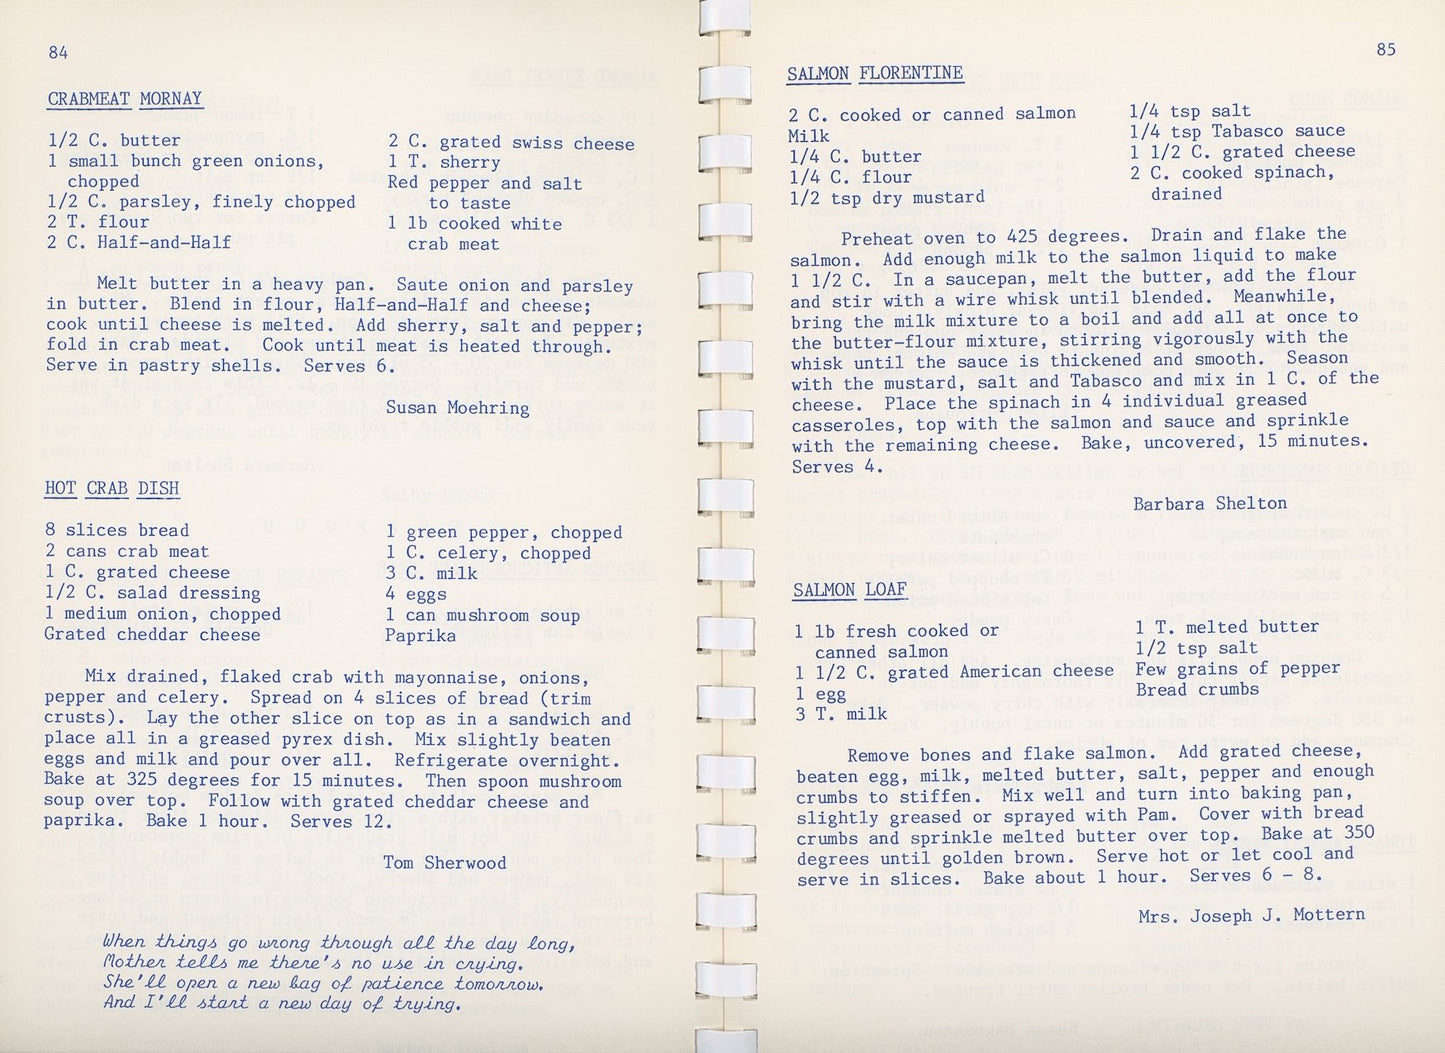 84
CRABMEAT MORNAY
1/2 C. butter
1 small bunch green onions,
chopped
1/2 C. parsley, finely chopped
2 T. flour
2 C. Half-and-Half
2 C. grated swiss cheese
1 T. sherry
Red pepper and salt
to taste
1 lb cooked white
crab meat
Melt butter in a heavy pan. Saute onion and parsley
in butter. Blend in flour, Half-and-Half and cheese;
cook until cheese is melted. Add sherry, salt and pepper;
fold in crab meat. Cook until meat is heated through.
Serve in pastry shells. Serves 6.
Susan Moehring
HOT CRAB DISH
8 slices bread
2 cans crab meat
1 C. grated cheese
1/2 C. salad dressing
1 medium onion, chopped
Grated cheddar cheese
1 green pepper, chopped
1 C. celery, chopped
3 C. milk
4 eggs
1 can mushroom soup
Paprika
Mix drained, flaked crab with mayonnaise, onions,
pepper and celery. Spread on 4 slices of bread (trim
crusts). Lay the other slice on top as in a sandwich and
place all in a greased pyrex dish. Mix slightly beaten
eggs and milk and pour over all. Refrigerate overnight.
Bake at 325 degrees for 15 minutes. Then spoon mushroom
soup over top. Follow with grated cheddar cheese and
paprika. Bake 1 hour. Serves 12.
Tom Sherwood
When things go wrong through all the day long,
Mother tells me there's no use in crying.
She'll open a new bag of patience tomorrow.
And I'll start a new day of trying.
85
SALMON FLORENTINE
2 C. cooked or canned salmon
Milk
1/4 C. butter
1/4 C. flour
1/2 tsp dry mustard
1/4 tsp salt
1/4 tsp Tabasco sauce
1 1/2 C. grated cheese
2 C. cooked spinach,
drained
Preheat oven to 425 degrees. Drain and flake the
salmon. Add enough milk to the salmon liquid to make
1 1/2 C. In a saucepan, melt the butter, add the flour
and stir with a wire whisk until blended. Meanwhile,
bring the milk mixture to a boil and add all at once to
the butter-flour mixture, stirring vigorously with the
whisk until the sauce is thickened and smooth. Season
with the mustard, salt and Tabasco and mix in 1 C. of the
cheese. Place the spinach in 4 individual greased
casseroles, top with the salmon and sauce and sprinkle
with the remaining cheese. Bake, uncovered, 15 minutes.
Serves 4.
Barbara Shelton
SALMON LOAF
1 lb fresh cooked or
canned salmon
1 1/2 C. grated American cheese
1 egg
3 T. milk
1 T. melted butter
1/2 tsp salt
Few grains of pepper
Bread crumbs
Remove bones and flake salmon. Add grated cheese,
beaten egg, milk, melted butter, salt, pepper and enough
crumbs to stiffen. Mix well and turn into baking pan,
slightly greased or sprayed with Pam. Cover with bread
crumbs and sprinkle melted butter over top. Bake at 350
degrees until golden brown. Serve hot or let cool and
serve in slices. Bake about 1 hour. Serves 6 - 8.
Mrs. Joseph J. Mottern